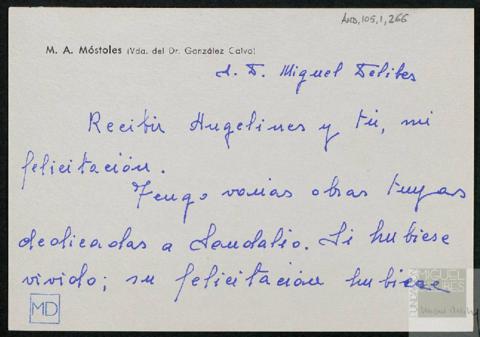 AMD,105,1,266
M. A. Móstoles (Vda. del Dr. González Calvo)
A. D. Miguel Delibes
Recibir Angelines y tú, mi
felicitación.
Tengo varias obras tuyas
dedicadas a Sandalio. Si hubiese
vivido; su felicitación hubiese
MD
MIGUEL
DELIBES